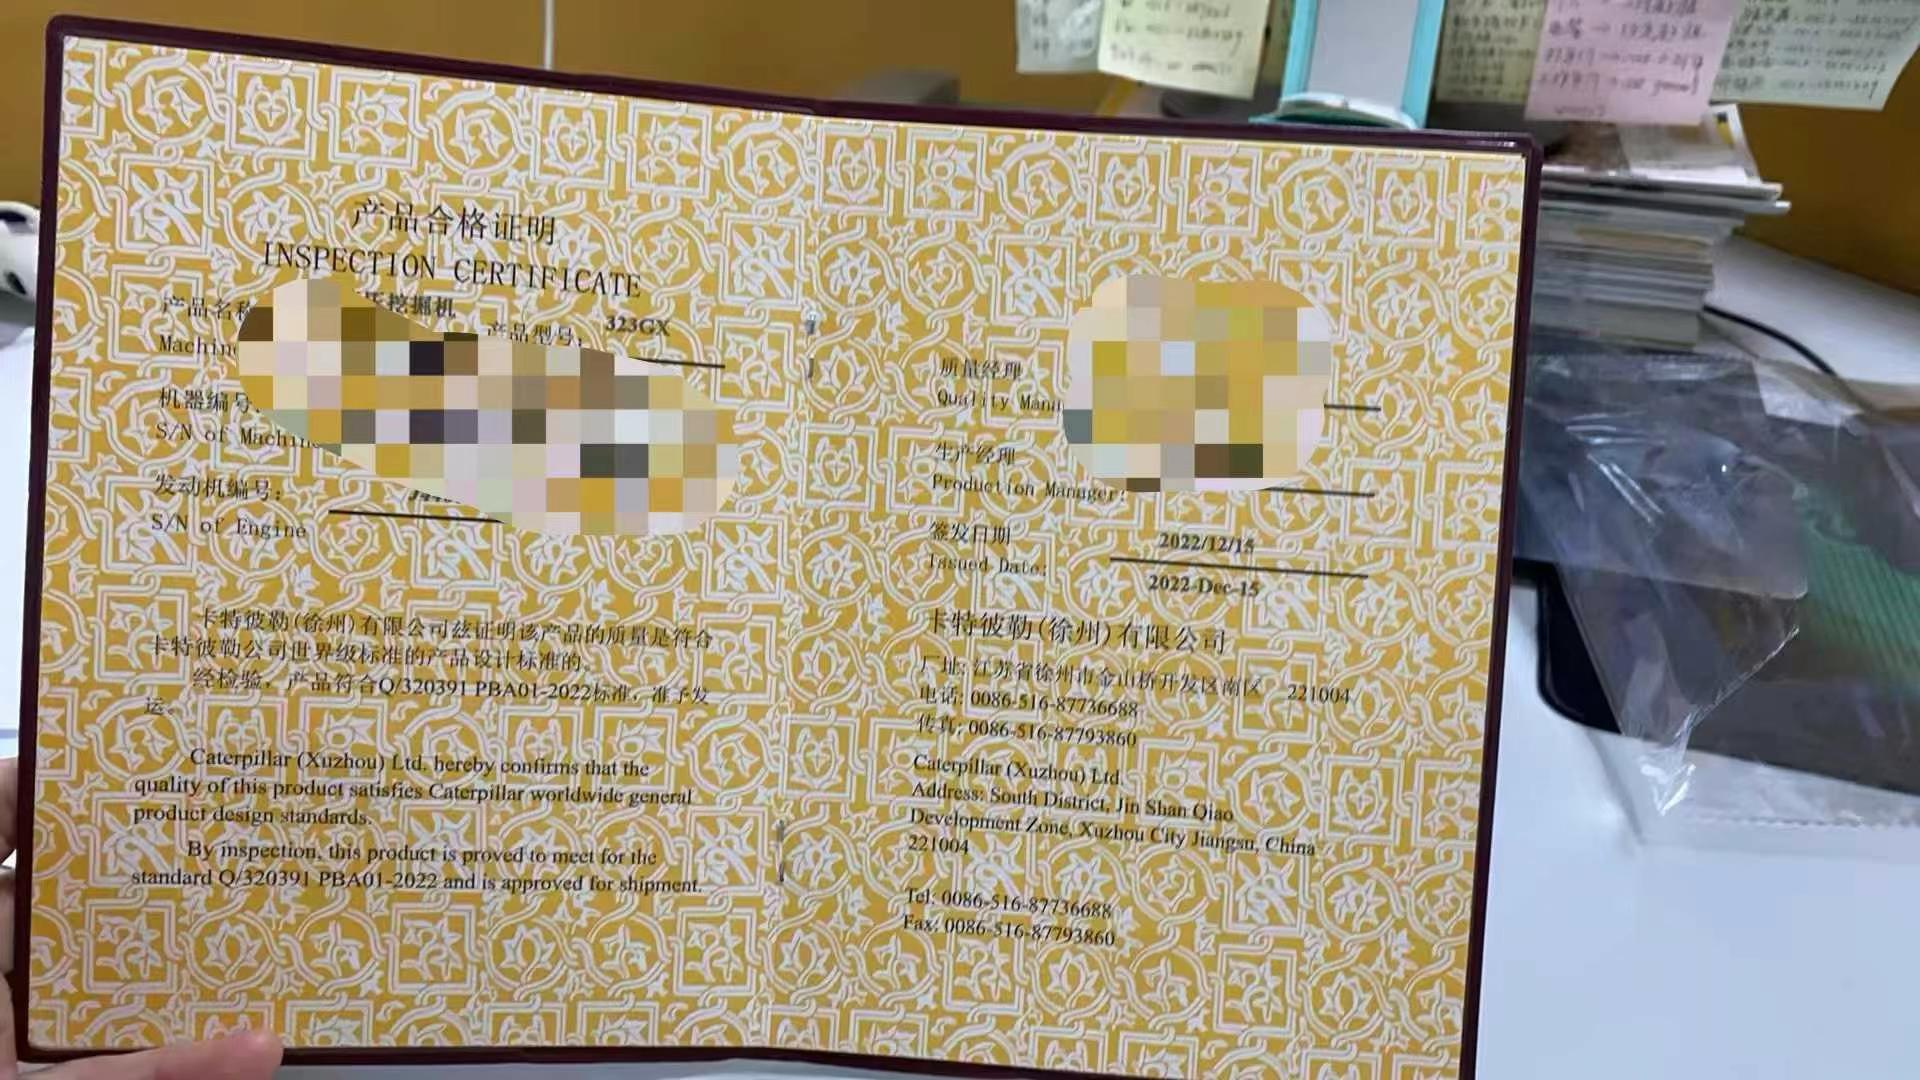 产品合格证明
INSPECTION CERTIFICATE
产品名称 挖掘机 产品型号: 323GX
Machine
机器编号:
S/N of Machine
发动机编号:
S/N of Engine
卡特彼勒(徐州)有限公司兹证明该产品的质量是符合
卡特彼勒公司世界级标准的产品设计标准的。
经检验，产品符合Q/320391 PBA01-2022标准，准予发
运。
Caterpillar (Xuzhou) Ltd. hereby confirms that the
quality of this product satisfies Caterpillar worldwide general
product design standards.
By inspection, this product is proved to meet for the
standard Q/320391 PBA01-2022 and is approved for shipment.
质量经理
Quality
生产经理
Production Manager:
签发日期 2022/12/15
Issued Date: 2022-Dec-15
卡特彼勒(徐州)有限公司
厂址: 江苏省徐州市金山桥开发区南区 221004
电话: 0086-516-87736688
传真: 0086-516-87793860
Caterpillar (Xuzhou) Ltd.
Address: South District, Jin Shan Qiao
Development Zone, Xuzhou City Jiangsu, China
221004
Tel: 0086-516-87736688
Fax: 0086-516-87793860